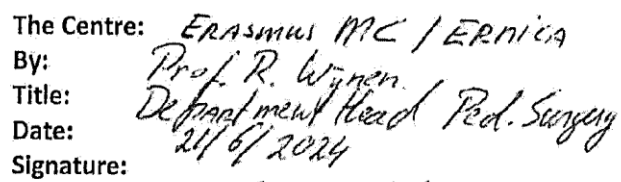 The Centre: Erasmus MC / ERNICA
By: Prof. R. Wijnen
Title: Department Head Ped. Surgery
Date: 21/6/2024
Signature: